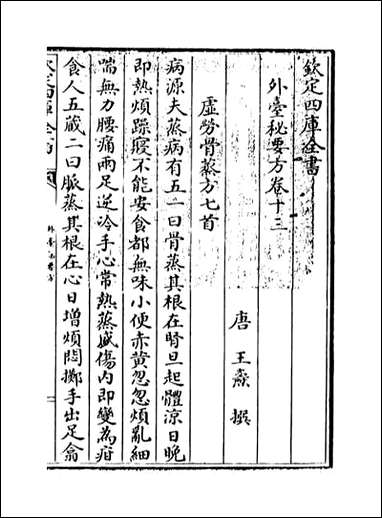 欽定四庫全書
外臺秘要方卷十三
唐 王燾 撰
虛勞骨蒸方七首
病源夫蒸病有五一曰骨蒸其根在腎旦起體涼日晚
即熱煩躁寢不能安食都無味小便赤黄忽忽煩亂細
喘無力腰痛兩足逆冷手心常熱蒸盛傷内即變為疳
食人五藏二曰脈蒸其根在心日增煩悶擲手出足翕
外臺秘要方